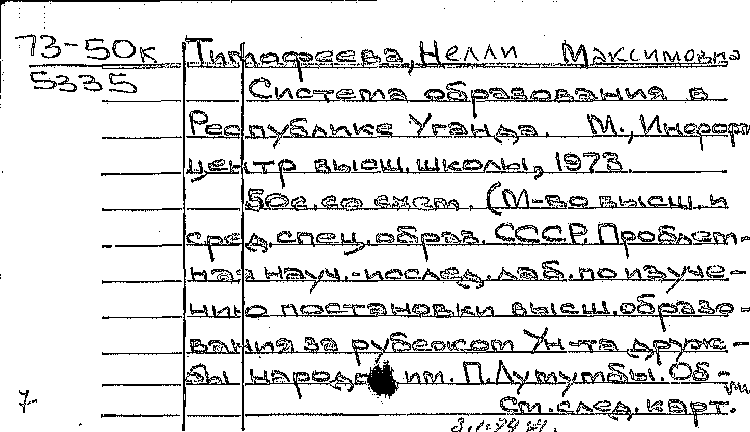 73-50к Тимофеева, Нелли Максимовна
5335 Система образования в
Республике Уганда. М., Информ
центр высш. школы, 1973.
50с. со схем. (М-во высш. и
сред. спец. образ. СССР. Проблем-
ная науч.-исслед. лаб. по изуче-
нию постановки высш. образо-
вания за рубежом Ун-та друж-
бы народов им. П. Лумумбы. Об-
7-
См. след. карт.